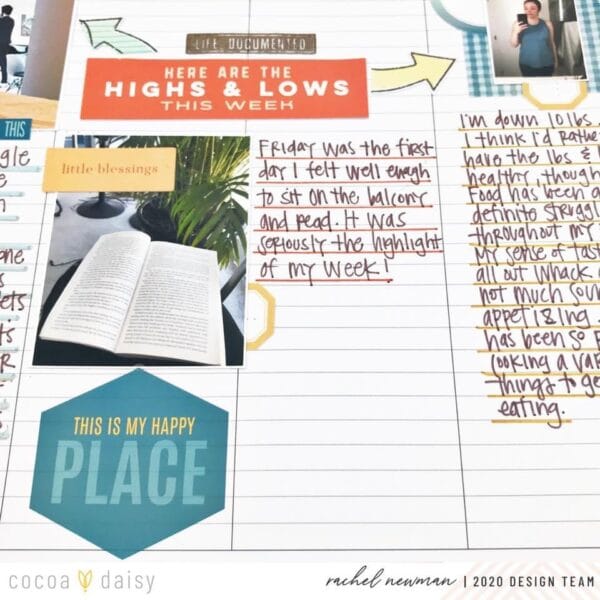 LIFE, DOCUMENTED
HERE ARE THE
HIGHS & LOWS
THIS WEEK
THIS
little blessings
FRIDAY WAS THE FIRST
day I felt well enough
to sit on the balcony
and read. It was
seriously the highlight
of my week!
THIS IS MY HAPPY
PLACE
I'm down 10 lbs.
I think I'd rather
have the lbs &
healthy, though
Food has been a
definite struggle
throughout my
My sense of
all out whack
not much
appetizing.
has been so
cooking a
things to
eating.
cocoa daisy
rachel newman | 2020 DESIGN TEAM